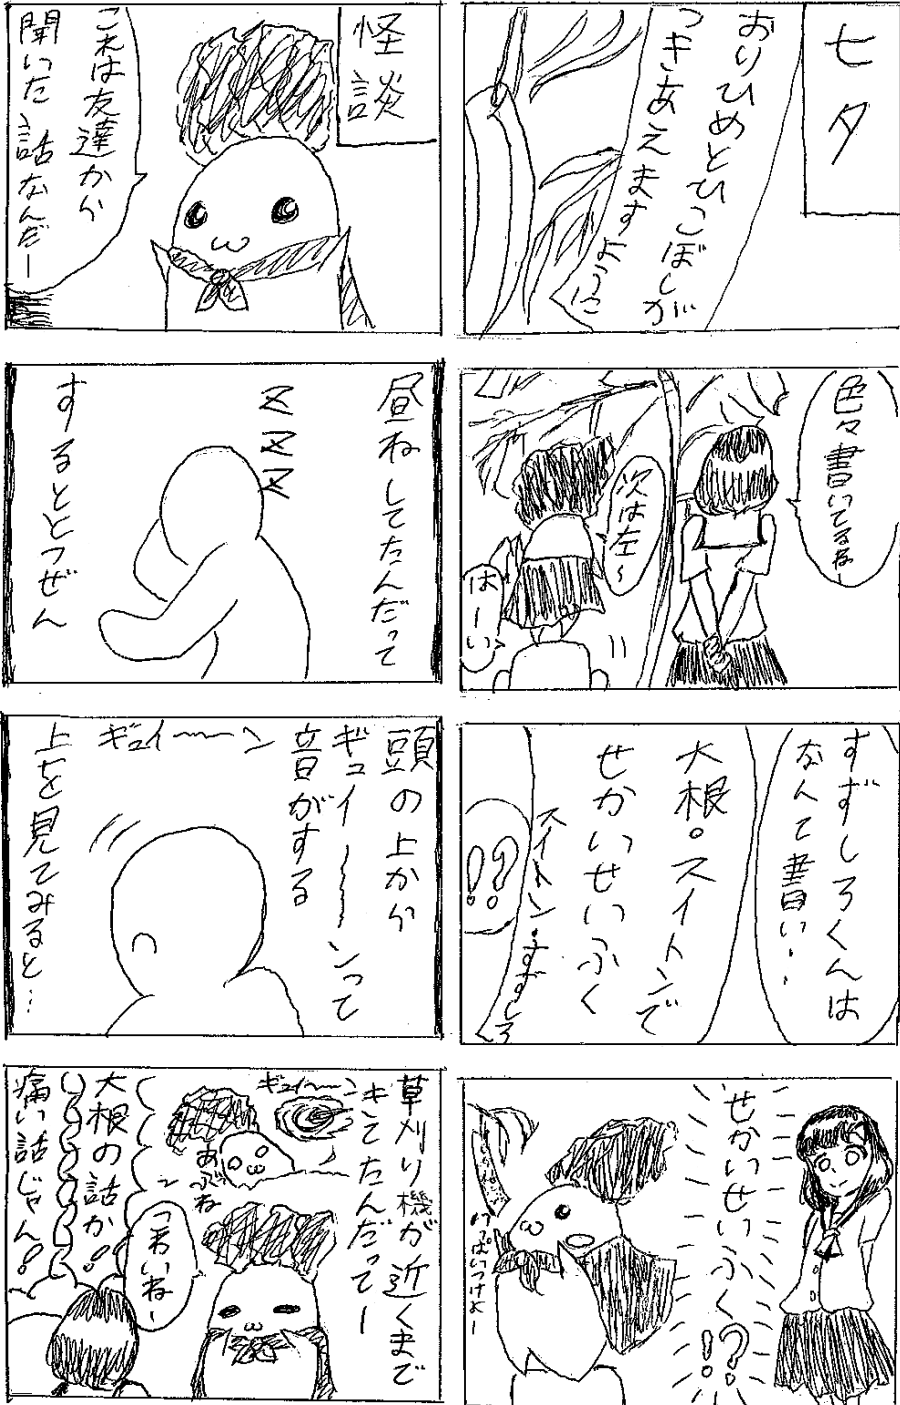 七夕
おりひめとひこぼしが
つきあえますように
色々書いてるなー
次は左〜
はーい
すずしろくんは
なんて書い・・
大根・スイトンで
せかいせいふく
スイトン・すずしろ
!?
せかいせいふく!?
いっぱいつけよー
怪談
これは友達から
聞いた話なんだー
昼ねしてたんだって
ZZZ
するととつぜん
頭の上から
ギュイ〜〜ンって
音がする
ギュイ〜〜ン
上を見てみると…
草刈り機が近くまで
きてたんだってー
ギュイ〜ン
あぶね
こわいねー
大根の話か!
痛い話じゃん!